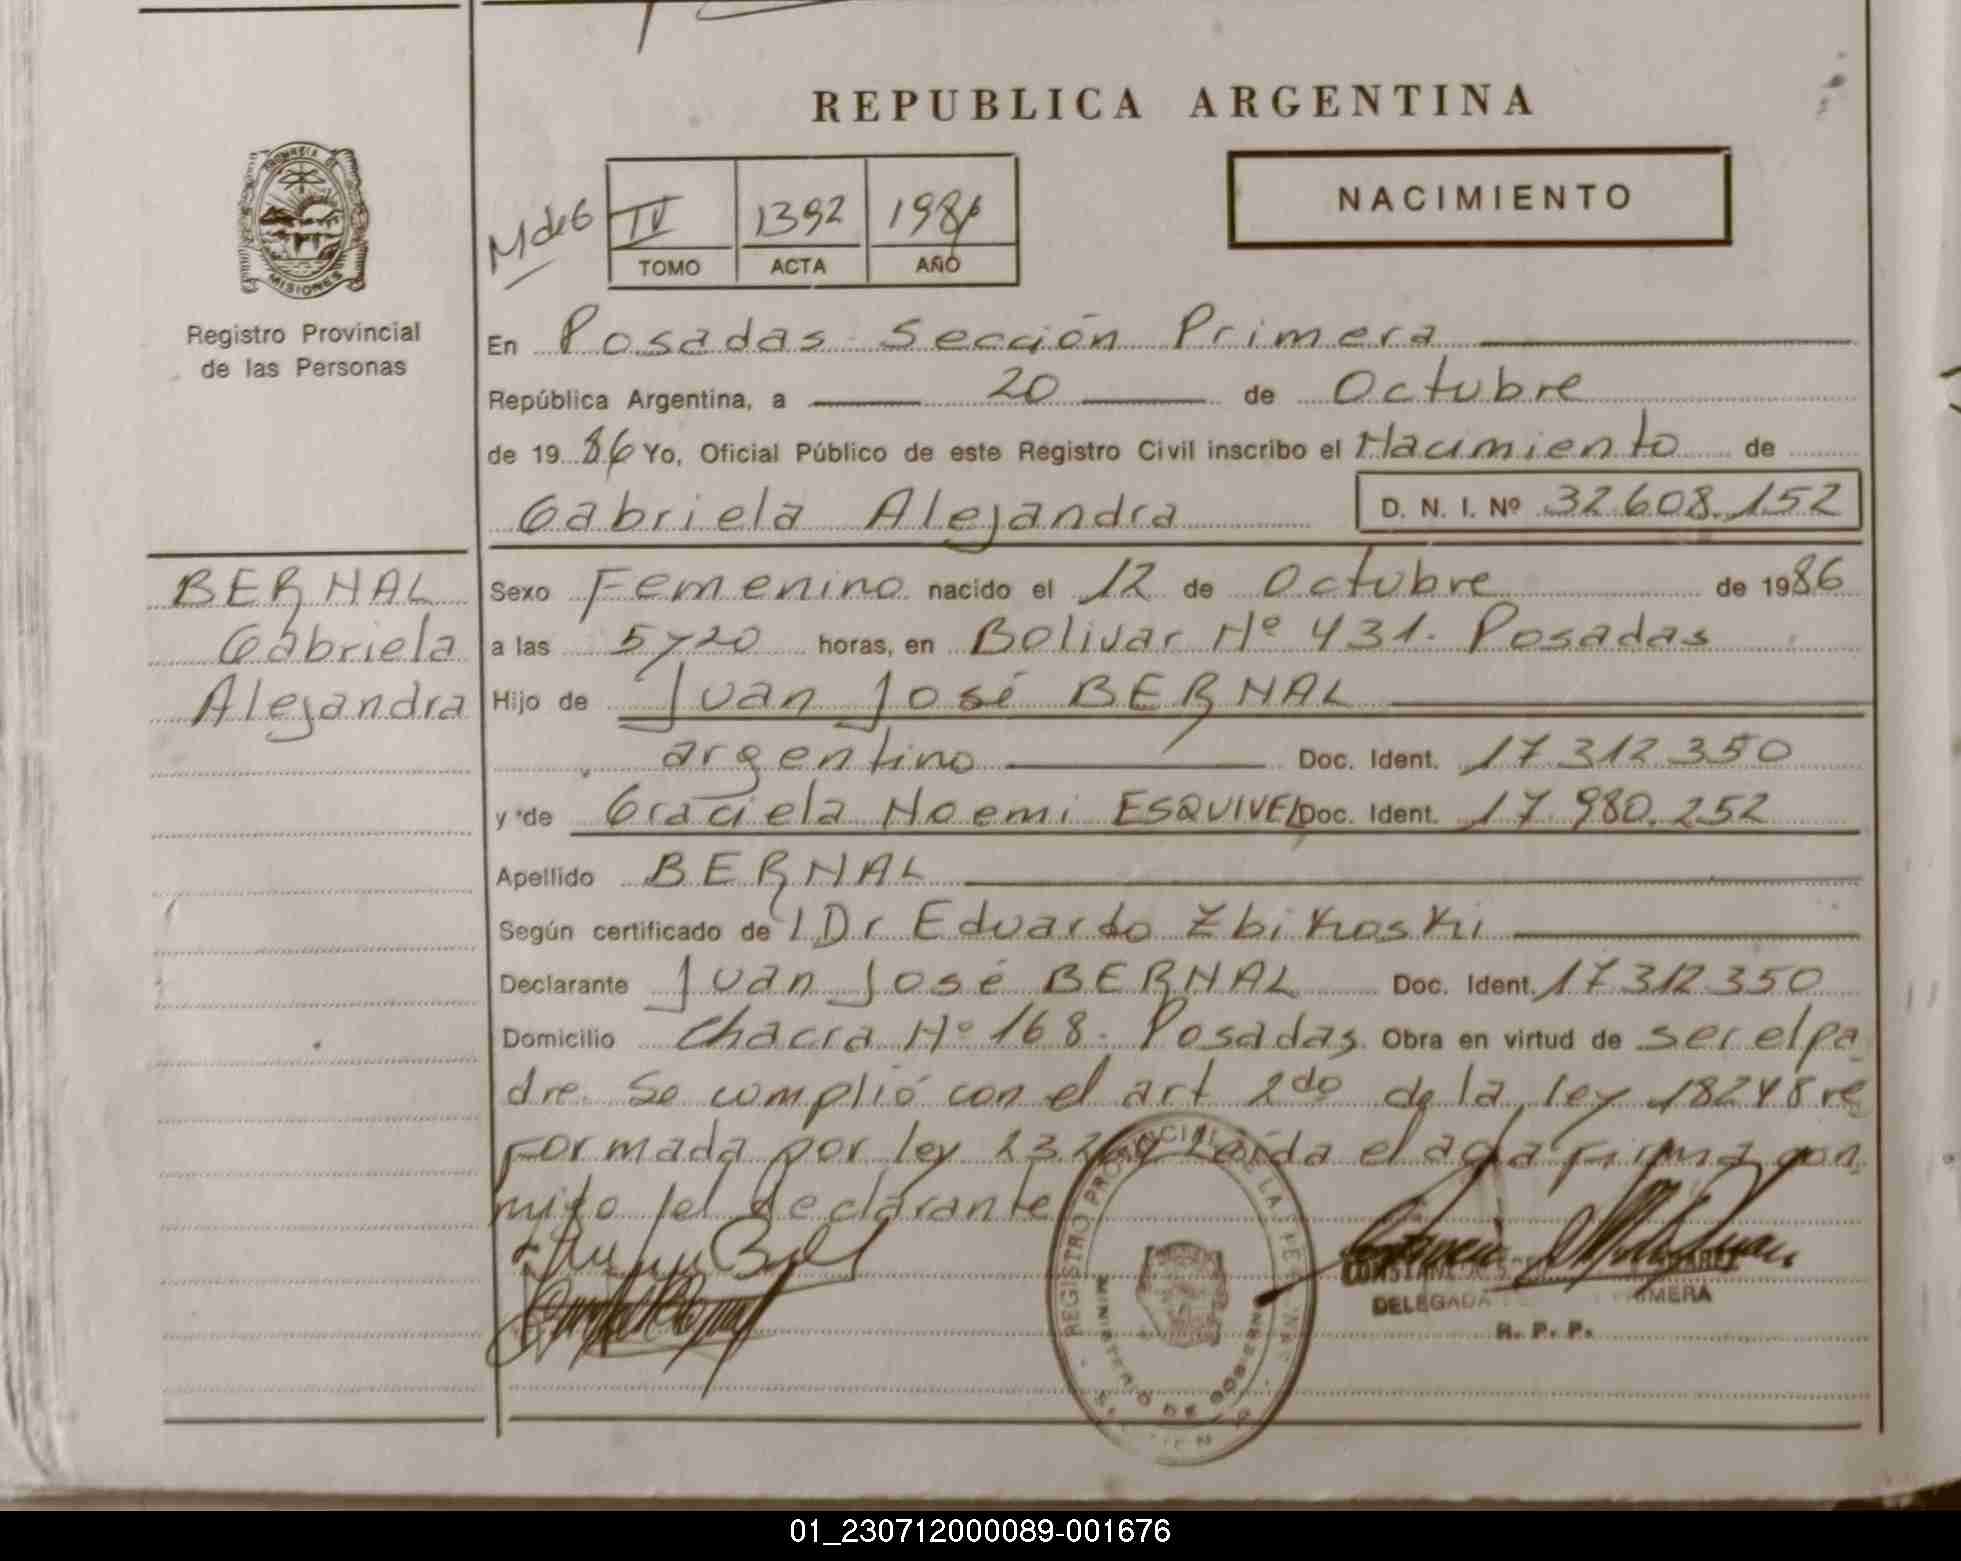 REPUBLICA ARGENTINA
NACIMIENTO
PROVINCIA DE
MISIONES
Registro Provincial
de las Personas
M de G
IV 1392 1986
TOMO ACTA AÑO
En Posadas Sección Primera
República Argentina, a 20 de Octubre
de 19 86 Yo, Oficial Público de este Registro Civil inscribo el Nacimiento de
Gabriela Alejandra D. N. I. Nº 32.608.152
BERNAL
Gabriela
Alejandra
Sexo Femenino nacido el 12 de Octubre de 1986
a las 5 y 20 horas, en Bolivar Nº 431. Posadas
Hijo de Juan José BERNAL
argentino Doc. Ident. 17.312.350
y de Graciela Noemi ESQUIVEL Doc. Ident. 17.980.252
Apellido BERNAL
Según certificado de l Dr Eduardo Zbikoski
Declarante Juan José BERNAL Doc. Ident. 17.312.350
Domicilio Chacra Nº 168. Posadas. Obra en virtud de ser el pa
dre. Se cumplió con el art 2do de la ley 18248 re
formada por ley 23.264 Leída el acta firma con
migo el declarante
REGISTRO PROVINCIAL DE LAS PERSONAS
MINISTERIO DE GOBIERNO
DELEGADA PRIMERA
R. P. P.
01_230712000089-001676